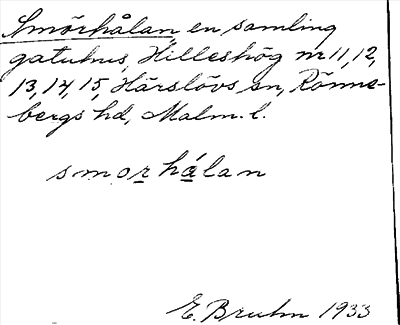 Smörhålan, en samling
gatuhus, Hilleshög nr 11, 12,
13, 14, 15, Härslövs sn, Rönne-
bergs hd, Malm. l.
smorhálan
E. Bruhn 1933